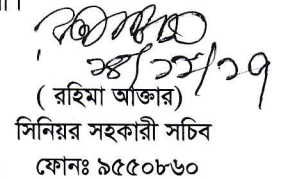 ২৪/১২/১৭
( রহিমা আক্তার)
সিনিয়র সহকারী সচিব
ফোনঃ ৯৫৫০৮৬০